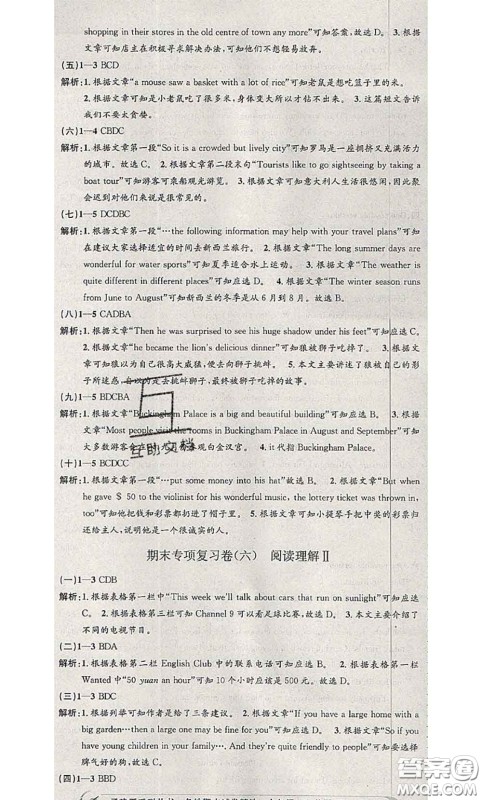 shopping in their stores in the old centre of town any more”可知答案，故选 D。 3. 根据
文章可知店主在积极寻求解决办法，可知他们不想轻易放弃。
(五) 1—3 BCD
解析：1. 根据文章“a mouse saw a basket with a lot of rice”可知老鼠是想吃篮子里的米。
2. 根据文章可知是小老鼠吃了很多米，身体变大所以才钻不出来。 3. 这篇短文告诉
我们不要太贪婪。
(六) 1—4 CBDC
解析：1. 根据文章第一段“So it is a crowded but lively city”可知罗马是一座拥挤又充满活力
的城市。故选 C。 2. 根据文章第二段末句“Tourists like to go sightseeing by taking a
boat tour”可知游客可乘船观光游览。 3. 根据文章可知意大利人生活很悠闲，因此可
以判断塞车对他们来说是很常见的。
(七) 1—5 DCDBC
解析：1. 根据文章第一段“…the following information may help with your travel plans”可知
在建议大家选择适宜的时间去新西兰旅行。 2. 根据文章“The long summer days are
wonderful for water sports”可知夏季适合水上运动。 3. 根据文章“The weather is quite
different in different places”可知应选 D。 4. 根据文章“The winter season runs
from June to August”可知新西兰的冬季是从 6 月到 8 月。故选 B。
(八) 1—5 CADBA
解析：1. 根据文章“Then he was surprised to see his huge shadow under his feet”可知应选 C。
2. 根据文章“he became the lion's delicious dinner”可知狼被狮子吃掉了。 4. 根据文章
可知狼以为自己很高大威猛，便去向狮子挑衅。 5. 本文主要讲述了狼被自己的影
子所迷惑，自以为是去挑衅狮子，最终被狮子吃掉的故事。
(九) 1—5 BDCBA
解析：1. 根据文章“Buckingham Palace is a big and beautiful building”可知应选 B。 2. 根据
文章“Most people visit the rooms in Buckingham Palace in August and September”可知
大多数游客会在八、九月参观白金汉宫。 4. it 代指 Buckingham Palace。
(十) 1—5 BCDCC
解析：1. 根据文章第一段“…put some money into his hat”可知应选 B。 2. 根据文章“But when
he gave $ 50 to the violinist for his wonderful music, the lottery ticket was thrown in,
too”可知应选 C。 3. 根据文章可知彩票和钱都扔进了帽子里。 5. 根据文章可知小提琴手把中奖彩票归
还给主人，说明他是一个很诚实的人。
期末专项复习卷(六) 阅读理解Ⅱ
(一) 1—3 CDB
解析：1. 根据表格第一栏中“This week we'll talk about cars that run on sunlight”可知应选
C。 2. 根据表格第三栏可知 Channel 9 可以看足球比赛，故选 D。 3. 本文主要介绍了
不同的电视节目。
(二) 1—3 BDA
解析：1. 根据表格第二栏 English Club 中的联系电话可知应选 B。 2. 根据表格第一栏
Wanted 中“50 yuan an hour”可知 10 个小时应该是 500 元。故选 D。
(三) 1—3 BDC
解析：1. 根据列举可知作者是给了三条建议。 2. 根据文章“If you have a large home with a
big garden…then a large dog may be wonderful for you”可知应选 D。 3. 根据文章“So if
you have young children in your family…who is quite friendly to children”可知要选择
脾气好的狗。故选 C。
(四) 1—3 BBD
互助文档
答案圈
MXQE.COM